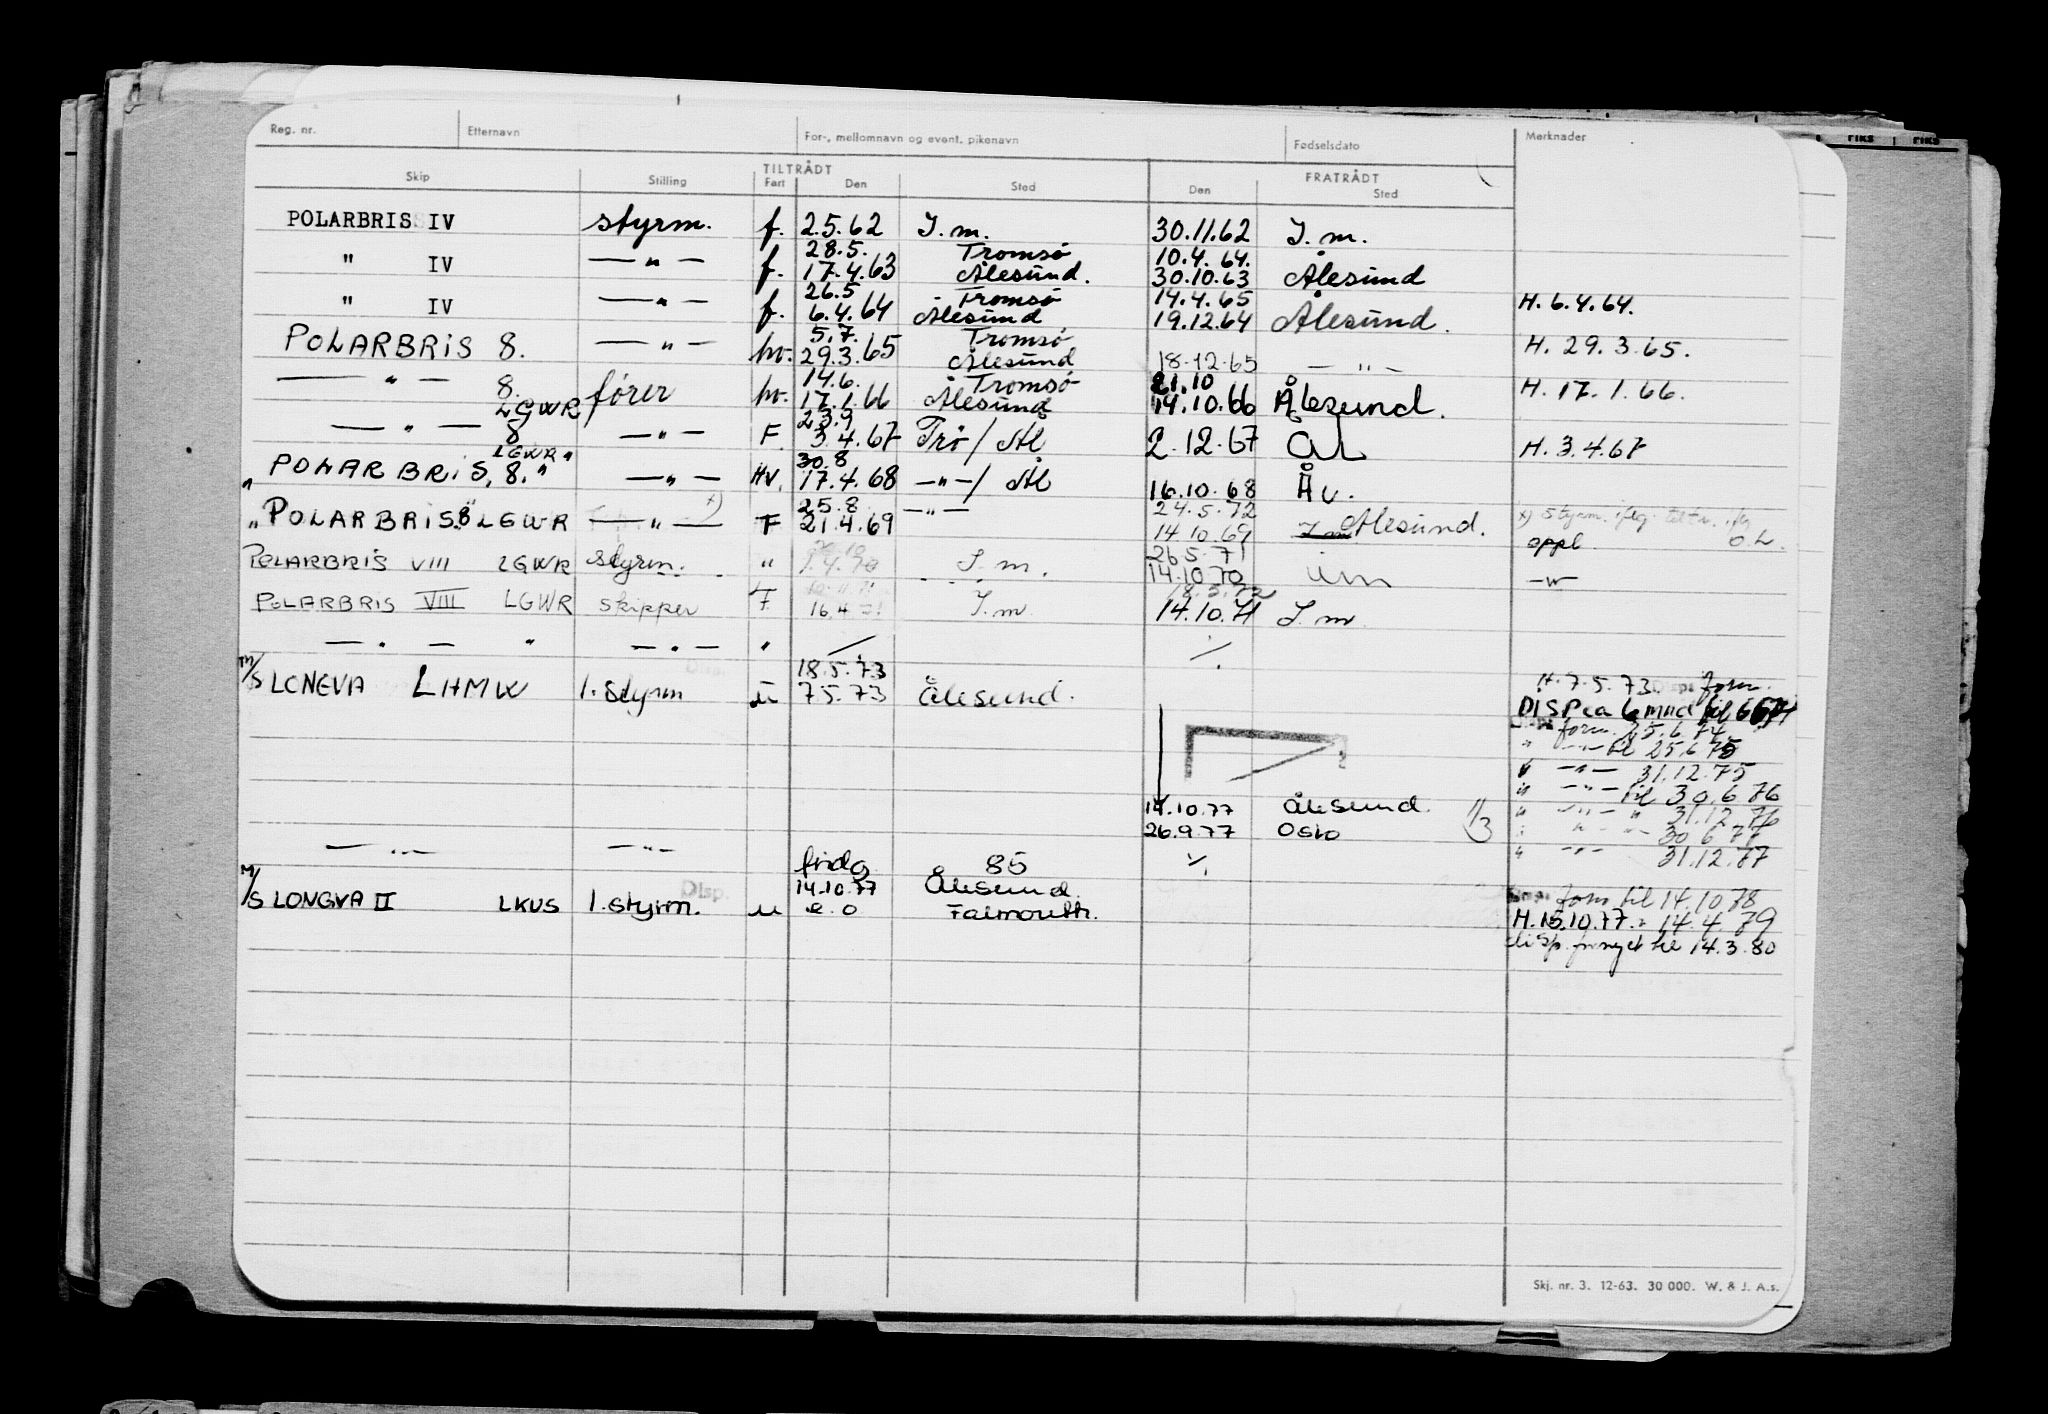 Reg. nr. Etternavn For-, mellomnavn og event. pikenavn Fødselsdato Merknader
Skip Stilling TILTRÅDT Fart Den Sted FRATRÅDT Den Sted
POLARBRIS IV styrm. f. 2.5.62 I.m. 30.11.62 I.m.
28.5. Tromsø 10.4.64.
" IV —"— f. 17.4.63 Ålesund. 30.10.63 Ålesund
26.5 Tromsø 14.4.65
" IV —"— f. 6.4.64 Ålesund 19.12.64 Ålesund. H. 6.4.64.
5.7. Tromsø
POLARBRIS 8. —"— hv. 29.3.65 Ålesund 18.12.65 —"— H. 29.3.65.
14.6. Tromsø 21.10
—"— 8. fører hv. 17.1.66 Ålesund 14.10.66 Ålesund. H. 17.1.66.
LGWR 23.9
—"— 8 —"— F 3.4.67 Trø/Ål 2.12.67 ÅL H. 3.4.67
LGWR" 30.8
"POLARBRIS, 8." —"— Hv. 17.4.68 —"—/Ål 16.10.68 Åv.
25.8. —"— 24.5.72
"POLARBRIS 8" LGWR —"— x) F 21.4.69 14.10.69 I.m Ålesund. x) Styrm.
oppl.
26.5.71
POLARBRIS VIII LGWR styrm. " I.m. 14.10.70 I.m —"—
18.5.72
POLARBRIS VIII LGWR skipper F. 16.4.71 I.m 14.10.71 I.m
—"— " —"— " / ./.
18.5.73
M/S LONGVA LHMW 1. styrm u 7.5.73 Ålesund. H. 7.5.73 Disp. forn.
DISP ca 6 mnd til
forn. 25.6.74
" —"— til 25.6.75
" —"— 31.12.75
" —"— til 30.6.76
14.10.77 Ålesund. 11/3 " —"— " 31.12.76
26.9.77 Oslo " —"— 30.6.77
—"— —"— ./. " —"— 31.12.77
85
14.10.77 Ålesund. Disp.
M/S LONGVA II LKUS 1. styrm. u e.o Falmouth.
Disp. forn til 14.10.78
H. 15.10.77. " 14.4.79
disp. fornyet til 14.3.80
Skj. nr. 3. 12-63. 30 000. W. & J. A.s.